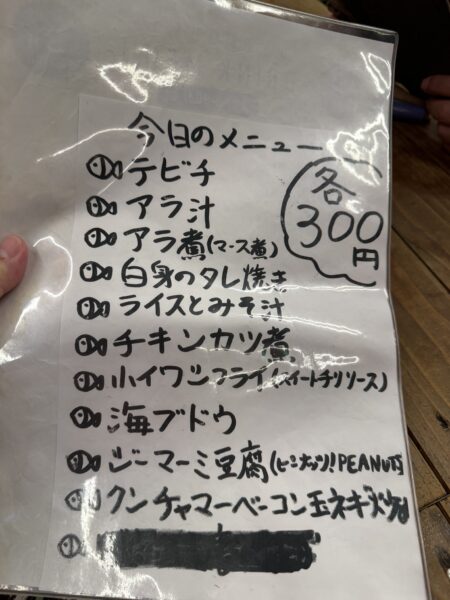 今日のメニュー
各
300
円
テビチ
アラ汁
アラ煮(マース煮)
白身のタレ焼き
ライスとみそ汁
チキンカツ煮
小イワシフライ(スイートチリソース)
海ブドウ
ジーマーミ豆腐(ピーナッツ!PEANUTS
クンチャマーベーコン玉ネギ